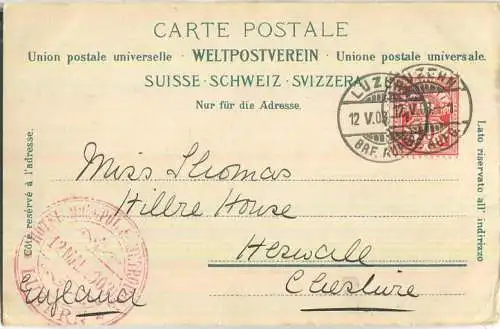 CARTE POSTALE
Union postale universelle · WELTPOSTVEREIN · Unione postale universale.
SUISSE · SCHWEIZ · SVIZZERA
Nur für die Adresse.
LUZERN
12 V.08
BRF. AUFG.
LUZERN
12 V.08
BRF. AUFG.
Côté réservé à l'adresse.
Lato riservato all' indirizzo
Miss Thomas
Hillre House
Heswall
Cheshire
England